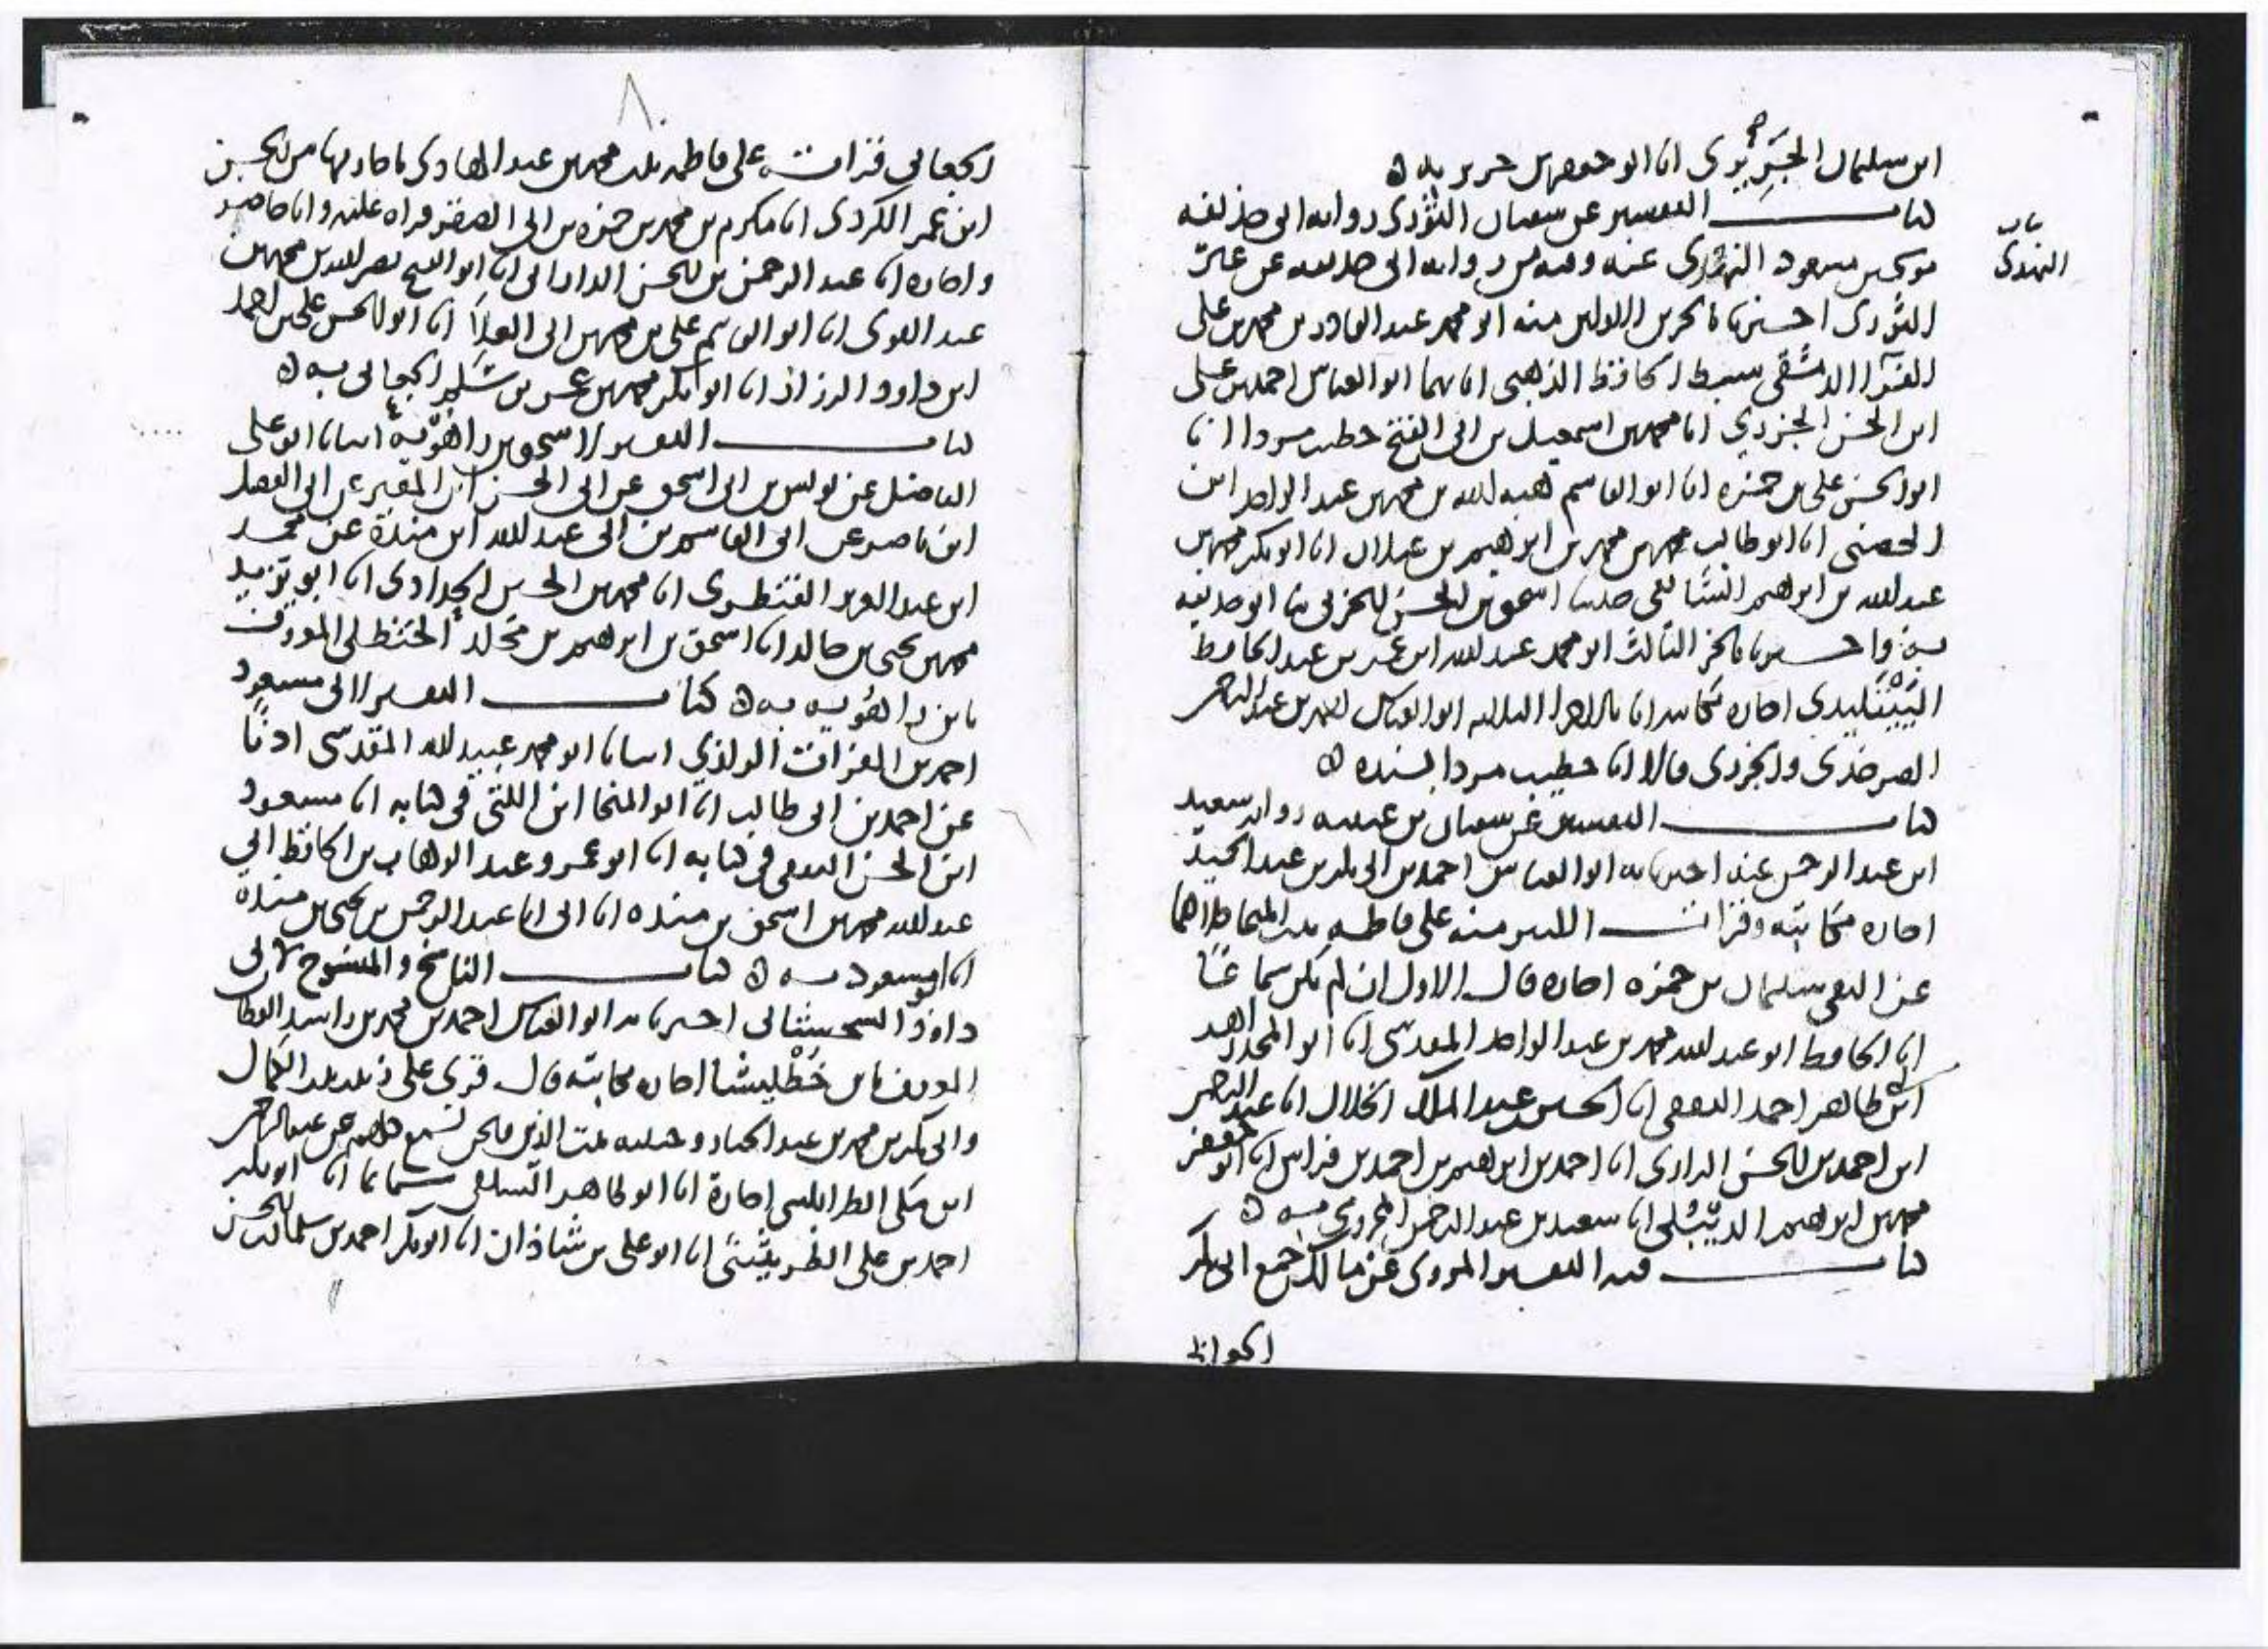 ابن سليمان الجريري انا ابو جعفر بن جرير به ه
كتاب التفسير عن سفيان الثوري رواية ابي حذيفة
موسى بن مسعود النهدي عنه وفيه من رواية ابي حذيفة عن غير
الثوري اخبرنا بالجزئين الاولين منه ابو محمد عبد القادر بن محمد بن علي
الفرا الدمشقي سبط الحافظ الذهبي انا بهما ابو العباس احمد بن علي
ابن الحسن الجزري انا محمد بن اسمعيل بن ابي الفتح خطيب مردا انا
ابو الحسن علي بن حمزه انا ابو القاسم هبة الله بن محمد بن عبد الواحد ابن
الحصين انا ابو طالب محمد بن محمد بن ابراهيم بن غيلان انا ابو بكر محمد بن
عبد الله بن ابراهيم الشافعي حدثنا اسحق بن الحسن الحربي ثنا ابو حذيفة
به واخبرنا بالجزء الثالث ابو محمد عبد الله ابن عمر بن عبد الحافظ
اجازه مكاتبة انا بالاجزا الثلاثة ابو العباس احمد بن عبد الرحمن
الصرخدي والجزري قالا انا خطيب مردا بسنده ه
كتاب التفسير عن سفيان بن عيينه رواية سعيد
ابن عبد الرحمن عنه اخبرنا به ابو العباس احمد بن ابي بكر بن عبد الحميد
اجازه مكاتبة وقرات الكثير منه على فاطمه بنت المنجا كلاهما
عن التقي سليمان بن حمزه اجازه قال الاول ان لم يكن سماعا
انا الحافظ ابو عبد الله محمد بن عبد الواحد المقدسي انا ابو المجد زاهد
ابن طاهر احمد الثقفي انا الحسين عبد الملك الخلال انا عبد الرحمن
ابن احمد بن الحسن الرازي انا احمد بن ابراهيم بن احمد بن فراس انا ابو جعفر
محمد بن ابراهيم الديبلي انا سعيد بن عبد الرحمن المخزومي به ه
كتاب فيه التفسير المروي عن مالك جمع ابي بكر
باب
النهدي
٨
الجعابي قرات على فاطمه بنت محمد بن عبد الهادي باجازتها من الحسن
ابن عمر الكردي انا مكرم بن محمد بن حمزه بن ابي الصقر قراه عليه وانا حاضر
واجازه انا عبد الرحمن بن الحسن الداراني انا ابو الفتح نصر الله بن محمد بن
عبد القوي انا ابو القاسم علي بن محمد بن ابي العلا انا ابو الحسن علي بن احمد
ابن داود الرزاز انا ابو بكر محمد بن عمر بن سلم الجعابي به ه
كتاب التفسير لاسحق بن راهويه انبانا ابو علي
الفاضل عن يونس بن ابي اسحق عن ابي الحسن ابن المقير عن ابي الفضل
ابن ناصر عن ابي القاسم بن ابي عبد الله ابن منده عن محمد
ابن عبد العزيز القنطري انا محمد بن الحسن الحدادي انا ابو يزيد
محمد بن يحيى بن خالد انا اسحق بن ابراهيم بن مخلد الحنظلي المعروف
بابن راهويه به ه كتاب التفسير لابي مسعود
احمد بن الفرات الرازي انبانا ابو محمد عبيد الله المقدسي اذنا
عن احمد بن ابي طالب انا ابو المنجا ابن اللتي في كتابه انا مسعود
ابن الحسن الثقفي في كتابه انا ابو عمرو عبد الوهاب بن الحافظ ابي
عبد الله محمد بن اسحق بن منده انا ابي انا عبد الرحمن بن يحيى بن منده
انا ابو مسعود به ه كتاب الناسخ والمنسوخ لابي
داود السجستاني اخبرنا به ابو العباس احمد بن محمد بن راشد القطان
المعروف بابن خطليشا اجازه مكاتبة قال قرئ على زينب بنت الكمال
وابي بكر بن محمد بن عبد الجبار وحبيبه بنت الزين ونحن نسمع كلهم عن عبد الرحمن
ابن مكي الطرابلسي اجازة انا ابو طاهر السلفي سماعا انا ابو بكر
احمد بن علي الطريثيثي انا ابو علي بن شاذان انا ابو بكر احمد بن سلمان بن الحسن